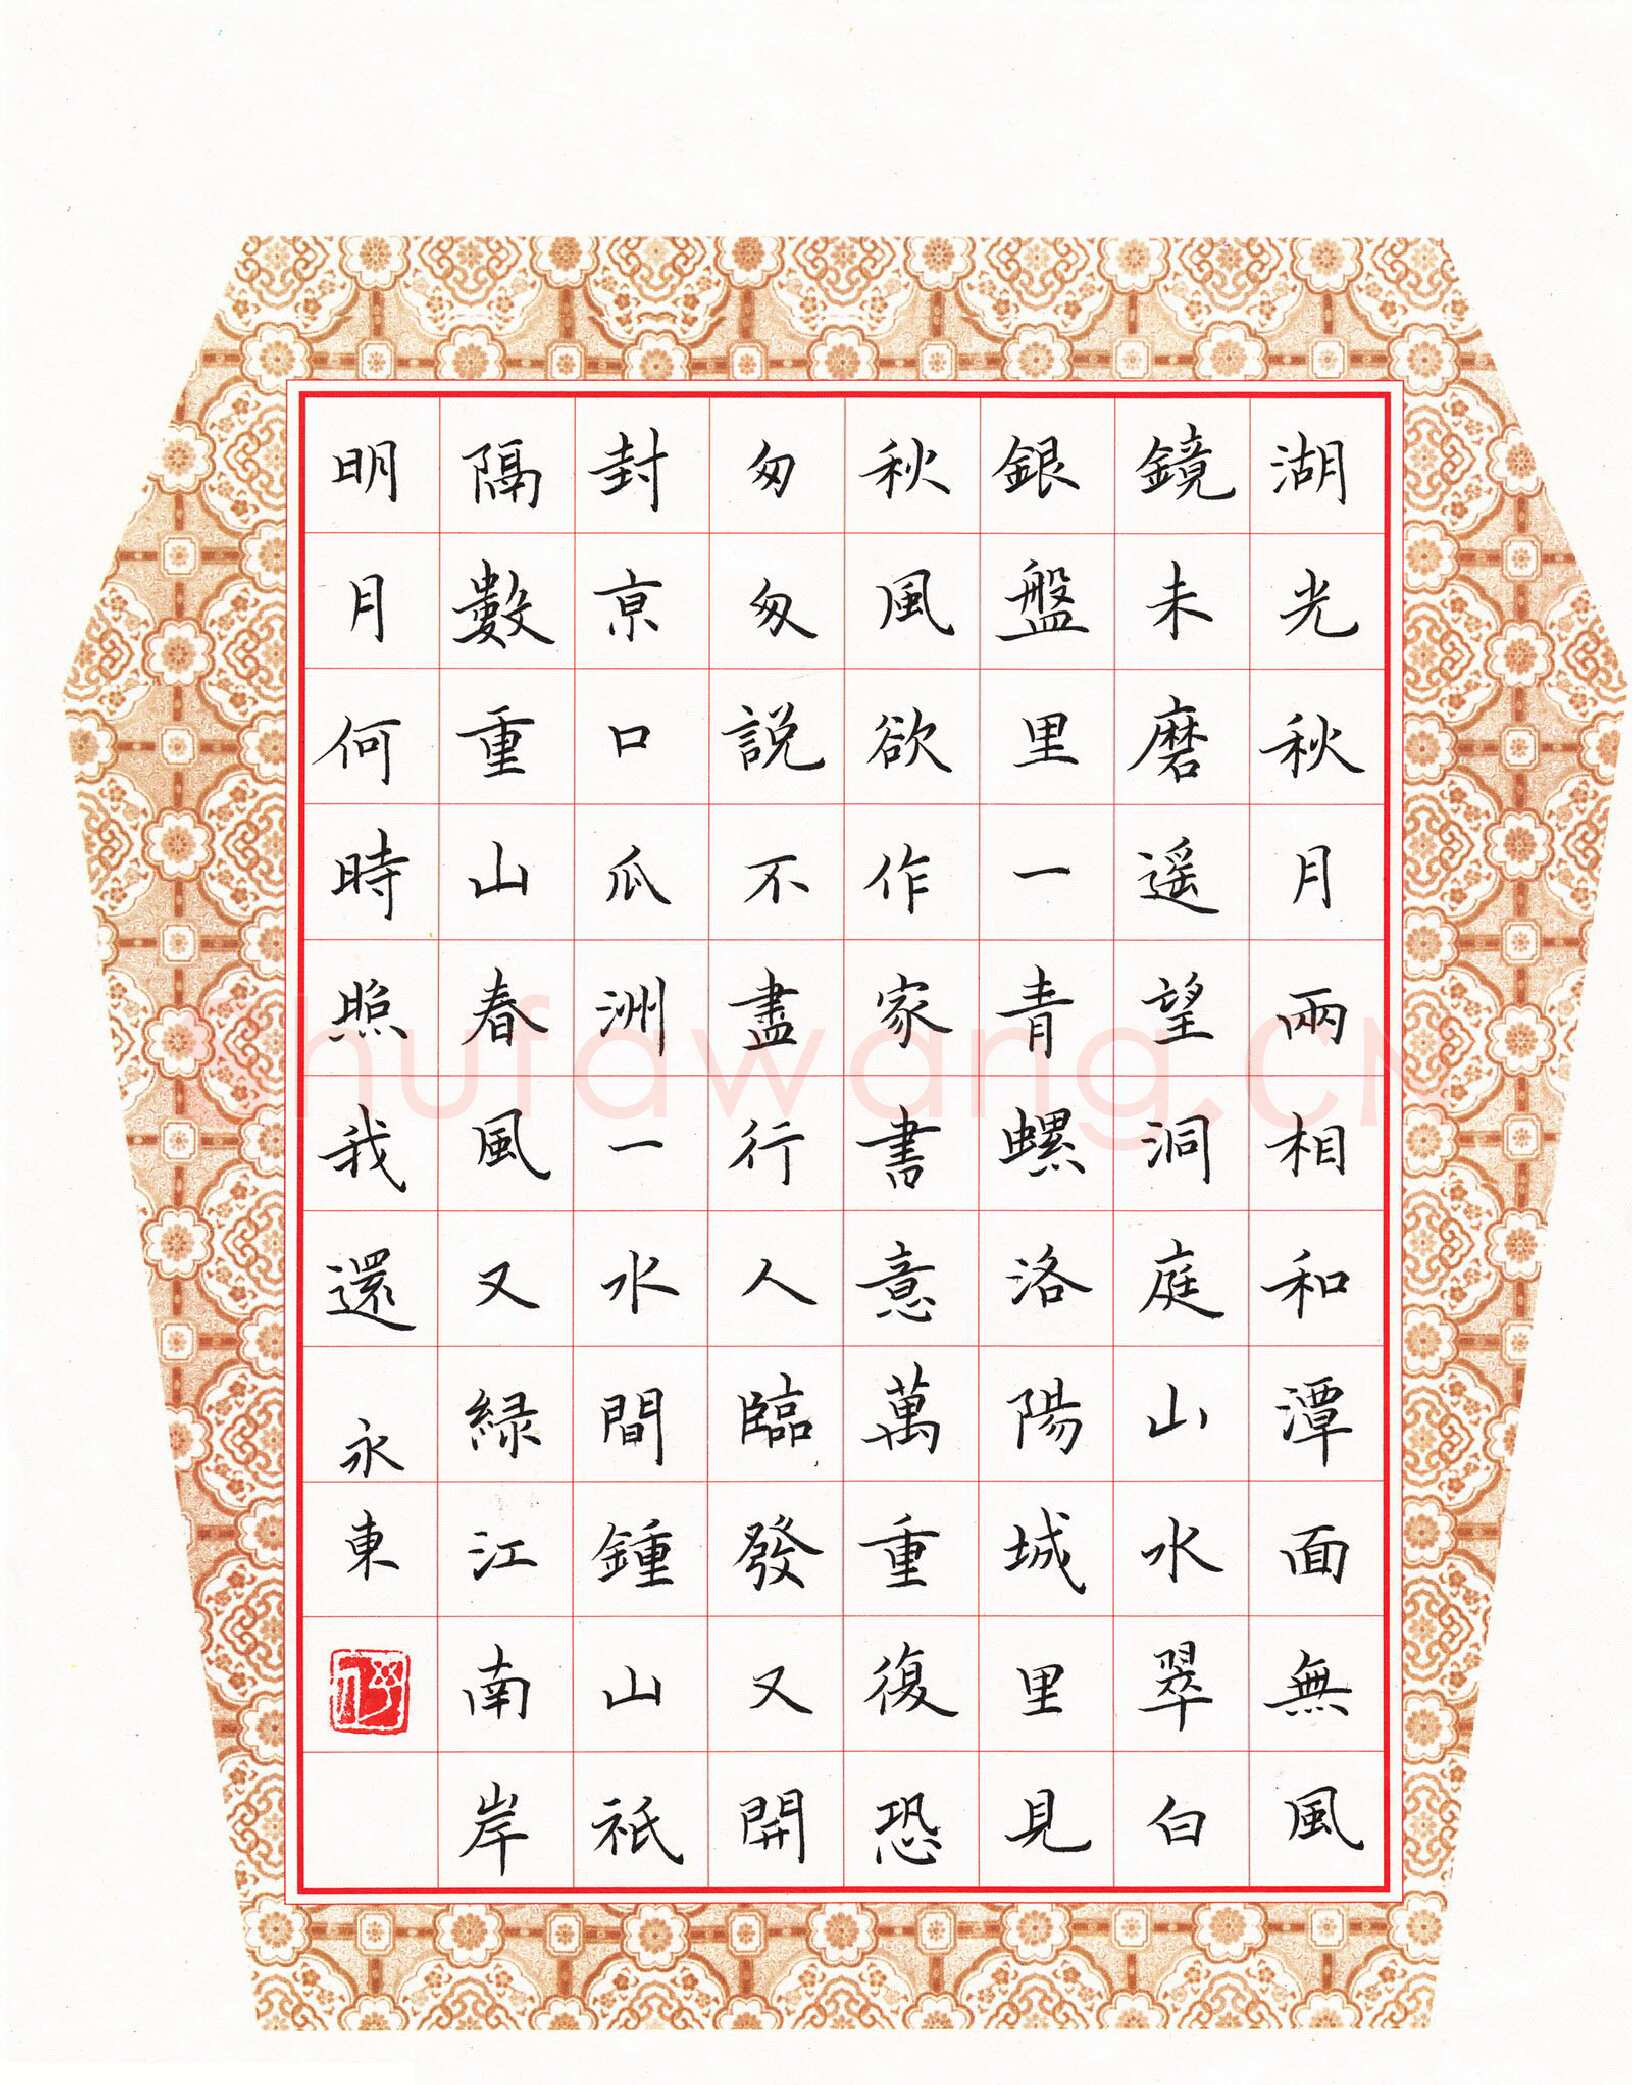 湖光秋月兩相和潭面無風
鏡未磨遥望洞庭山水翠白
銀盤里一青螺洛陽城里見
秋風欲作家書意萬重復恐
匆匆説不盡行人臨發又開
封京口瓜洲一水間鍾山衹
隔數重山春風又緑江南岸
明月何時照我還永東
Shufawang.CN